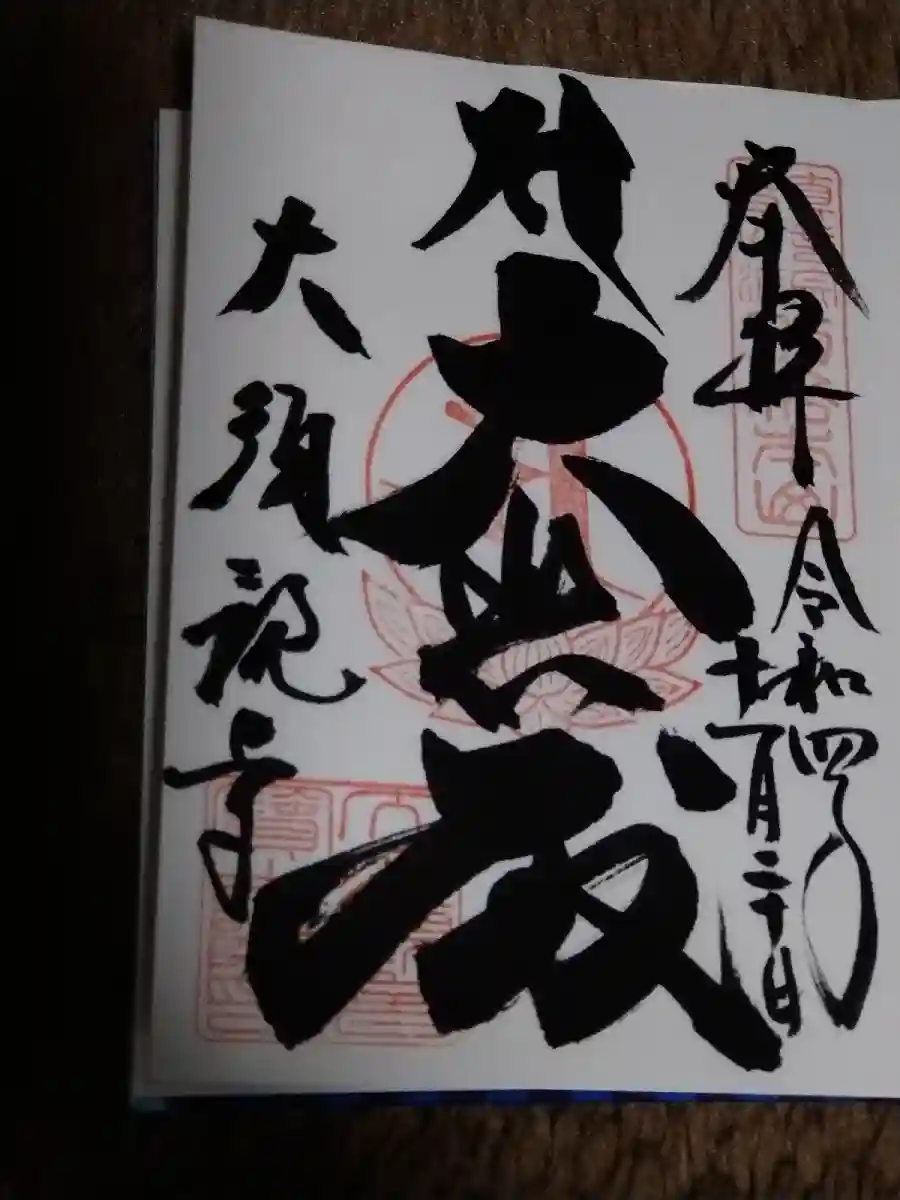 奉拝
令和四年
十一月二十日
大悲殿
大須観音